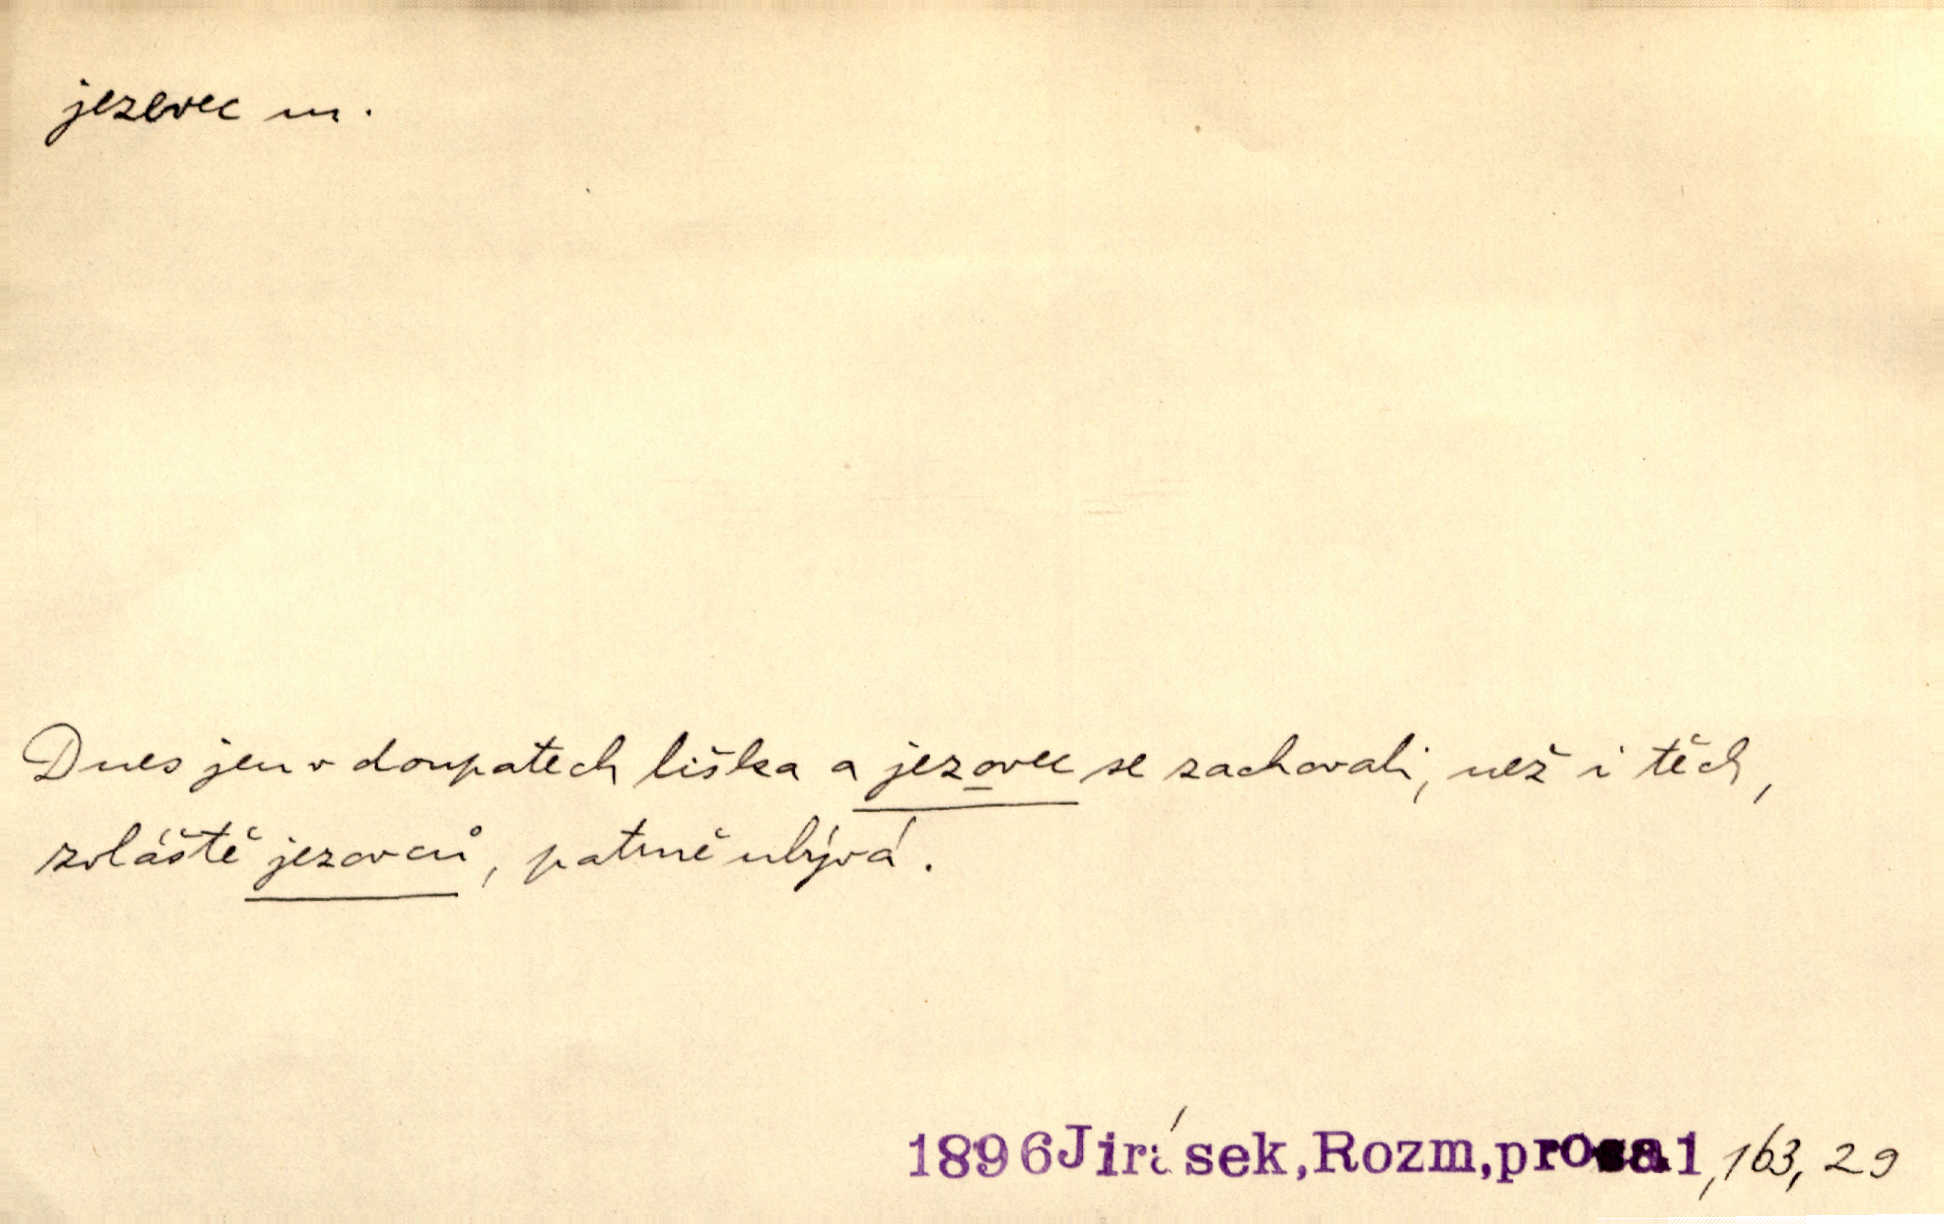 jezevec m.
Dnes jen v doupatech liška a jezovec se zachovali, než i těch,
zvláště jezovců, patrně ubývá.
1896 Jirásek, Rozm, prosa 1, 163, 29